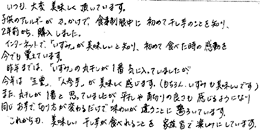 いつも 大変 美味しく 頂いています。
子供のアレルギーが きっかけで、食事制限中に 初めて 干し芋のことを 知り、
2年前から 購入しました。
インターネットで、「いずみ」が 美味しいと 知り、初めて 食べた時の 感動を
今でも 覚えています。
昨年までは、「いずみ」の 丸干しが 1番 気に入っていましたが
今年は "玉豊"、"人参芋"が 美味しく 感じます。(もちろん、いずみも 美味しいです)
また、丸干しが 1番と 思っていましたが 平干しや 角切りの 良さも 感じるようになり
同じ お芋で 切り方が 変わるだけで 味わいが 違うことに 感動しています。
これからも、美味しい 干し芋が 食べれることを 家族皆で 楽しみにしています。